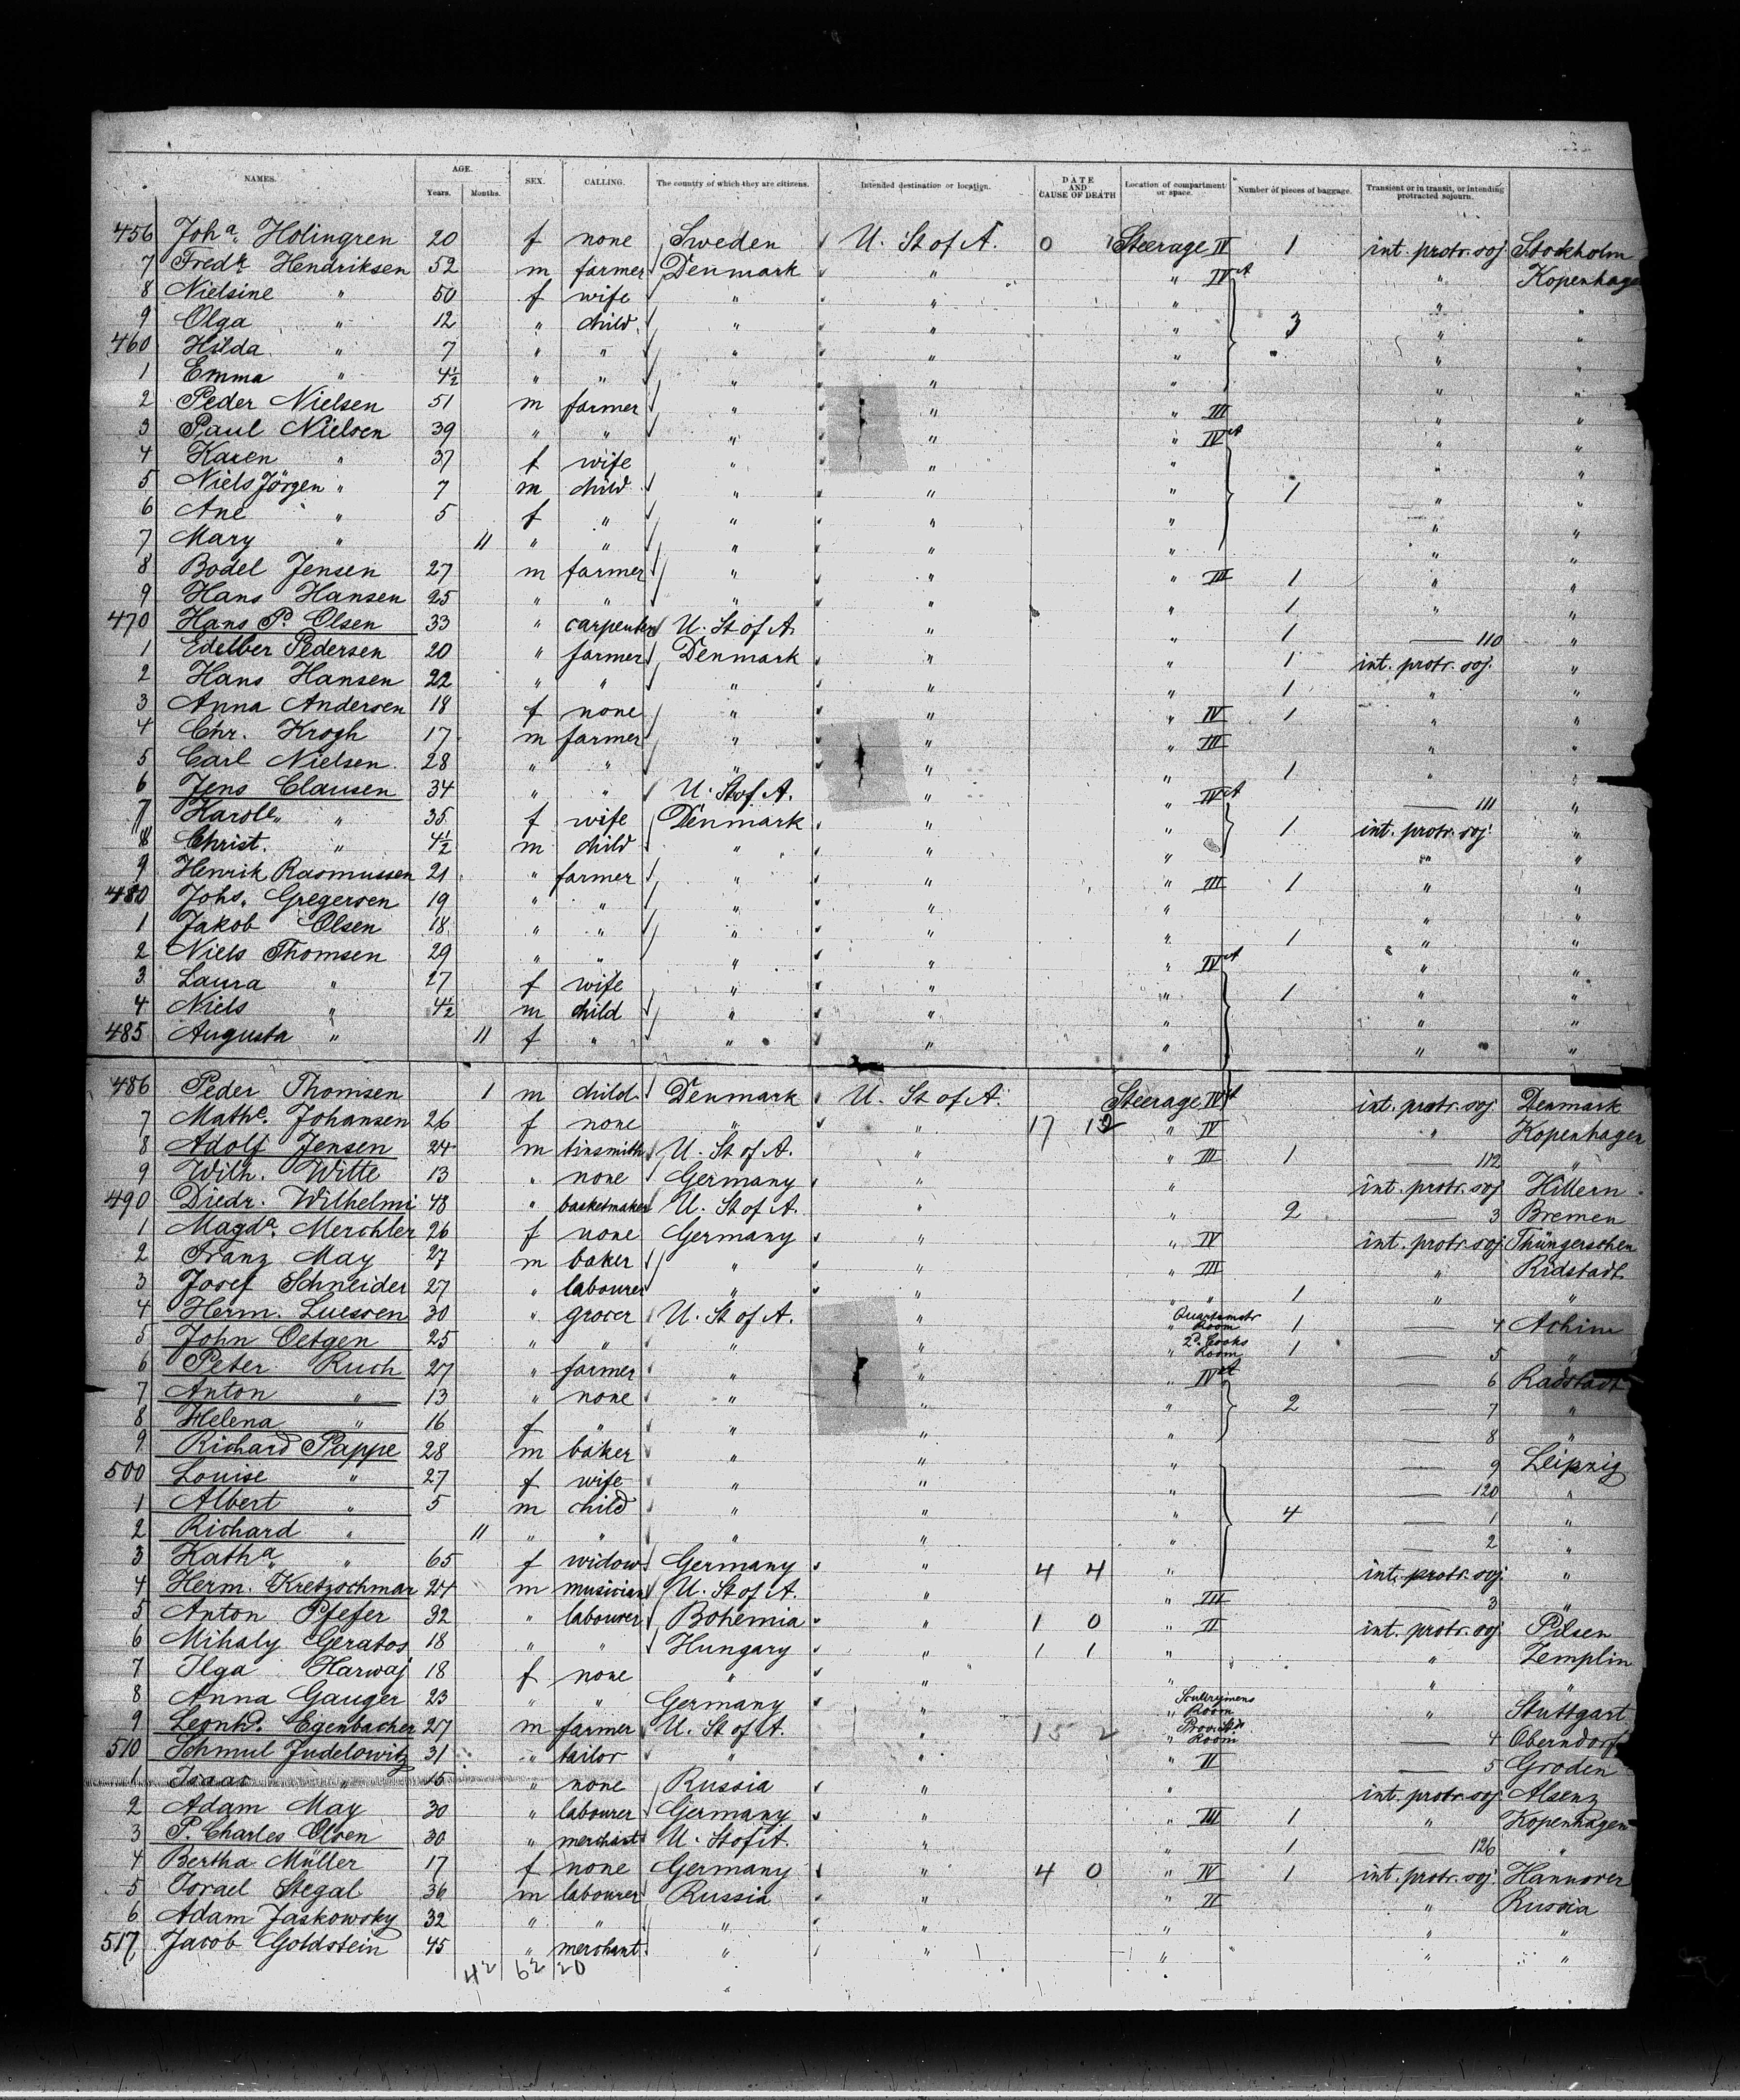 NAMES. AGE. Years. Months. SEX. CALLING. The country of which they are citizens. Intended destination or location. DATE AND CAUSE OF DEATH Location of compartment or space. Number of pieces of baggage. Transient or in transit, or intending protracted sojourn.
456 Joha. Holingren 20 f none Sweden U. St of A. 0 Steerage IV 1 int. protr. soj. Stockholm
7 Fredk. Hendriksen 52 m farmer Denmark " " IV A " Kopenhage
8 Nielsine " 50 f wife " " " " "
9 Olga " 12 " child " " " 3 " "
460 Hilda " 7 " " " " " " "
1 Emma " 4½ " " " " " " "
2 Peder Nielsen 51 m farmer " " " III " "
3 Paul Nielsen 39 " " " " " IV A " "
4 Karen " 37 f wife " " " " "
5 Niels Jörgen " 7 m child " " " 1 " "
6 Ane " 5 f " " " " " "
7 Mary " 11 " " " " " " "
8 Bodel Jensen 27 m farmer " " " III 1 " "
9 Hans Hansen 25 " " " " " 1 " "
470 Hans P. Olsen 33 " carpenter U. St of A. " " 1 — 110 "
1 Edelber Pedersen 20 " farmer Denmark " " 1 int. protr. soj. "
2 Hans Hansen 22 " " " " " 1 " "
3 Anna Andersen 18 f none " " " IV 1 " "
4 Chr. Krogh 17 m farmer " " " III " "
5 Carl Nielsen 28 " " " " " 1 " "
6 Jens Clausen 34 " " U. St of A. " " IV A — 111 "
7 Karole " 35 f wife Denmark " " 1 int. protr. soj. "
8 Christ. " 4½ m child " " " " "
9 Henrik Rasmussen 21 " farmer " " " III 1 " "
480 Johs. Gregersen 19 " " " " " " "
1 Jakob Olsen 18 " " " " " 1 " "
2 Niels Thomsen 29 " " " " " IV A " "
3 Laura " 27 f wife " " " 1 " "
4 Niels " 4½ m child " " " " "
485 Augusta " 11 f " " " " " "
486 Peder Thomsen 1 m child Denmark U. St of A. Steerage IV A int. protr. soj. Denmark
7 Mathe. Johansen 26 f none " " 17 12 " IV " Kopenhagen
8 Adolf Jensen 24 m tinsmith U. St of A. " " III 1 — 112 "
9 Wilh. Witte 13 " none Germany " " int. protr. soj. Hillern
490 Diedr. Wilhelmi 48 " basketmaker U. St of A. " " 2 — 3 Bremen
1 Magda. Merchler 26 f none Germany " " IV int. protr. soj. Thüngersohen
2 Franz May 27 m baker " " " III " Ridstadt
3 Josef Schneider 27 " labourer " " " " 1 " "
4 Herm. Luessen 30 " grocer U. St of A. " " Quartermstr Room 1 — 4 Achim
5 John Oetgen 25 " " " " " 2d. Cooks Room 1 — 5 "
6 Peter Ruch 27 " farmer " " " IV A — 6 Radstadt
7 Anton " 13 " none " " " 2 — 7 "
8 Helena " 16 f " " " " — 8 "
9 Richard Pappe 28 m baker " " " — 9 Leipzig
500 Louise " 27 f wife " " " — 120 "
1 Albert " 5 m child " " " 4 — 1 "
2 Richard " 11 " " " " " — 2 "
3 Katha " 65 f widow Germany " 4 4 " int. protr. soj. "
4 Herm. Kretzschmar 24 m musician U. St of A. " " III — 3 "
5 Anton Pfefer 32 " labourer Bohemia " 1 0 " II int. protr. soj. Pilsen
6 Mihaly Geratos 18 " " Hungary " 1 1 " " Zemplin
7 Ilga Harwaj 18 f none " " " " "
8 Anna Gauger 23 " " Germany " " Room " Stuttgart
9 Leonhd. Egenbacher 27 m farmer U. St of A. " 15 2 " Room — 4 Oberndorf
510 Schmul Judelowitz 31 " tailor " " " II — 5 Groden
1 Isaac " 15 " none Russia " " int. protr. soj. Alsenz
2 Adam May 30 " labourer Germany " " III 1 " Kopenhagen
3 P. Charles Olsen 30 " merchant U. St of A. " " 1 — 126 "
4 Bertha Müller 17 f none Germany " 4 0 " IV 1 int. protr. soj. Hannover
5 Israel Stegal 36 m labourer Russia " " II " Russia
6 Adam Jaskowsky 32 " " " " " " "
517 Jacob Goldstein 45 " merchant " " " " "
42 62 20